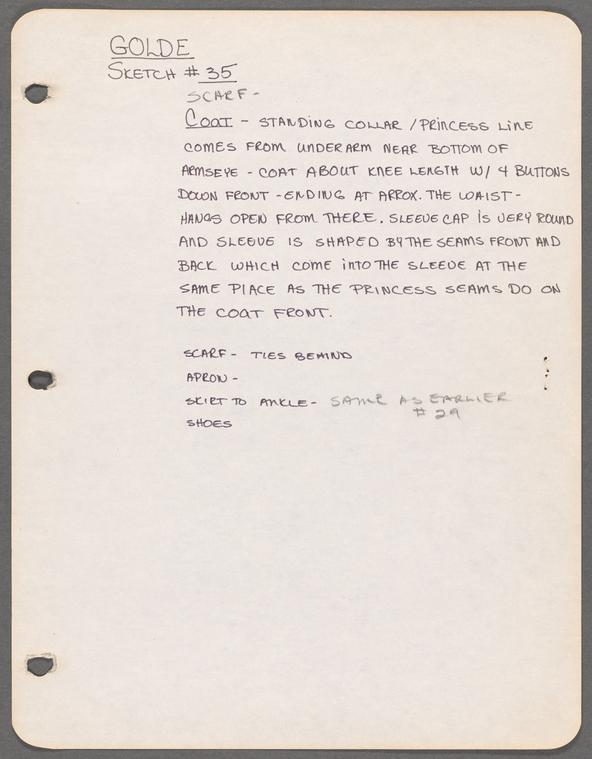 GOLDE
SKETCH # 35
SCARF -
COAT - STANDING COLLAR / PRINCESS LINE
COMES FROM UNDERARM NEAR BOTTOM OF
ARMSEYE - COAT ABOUT KNEE LENGTH W/ 4 BUTTONS
DOWN FRONT - ENDING AT APROX. THE WAIST -
HANGS OPEN FROM THERE. SLEEVE CAP IS VERY ROUND
AND SLEEVE IS SHAPED BY THE SEAMS FRONT AND
BACK WHICH COME INTO THE SLEEVE AT THE
SAME PLACE AS THE PRINCESS SEAMS DO ON
THE COAT FRONT.
SCARF - TIES BEHIND
APRON -
SKIRT TO ANKLE - SAME AS EARLIER
# 29
SHOES